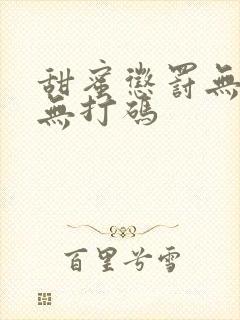 甜蜜懲罰無
無打碼
百里兮雪